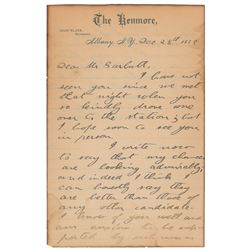 The Kenmore,
Albany, N.Y., Dec. 28th 188
Dear Mr
I have not
seen you since we met
that night when you
so kindly drove me
over to the station; but
I hope soon to see you
in person.
I write now
to say that my chances
are looking admirably;
and indeed I think I
can honestly say they
are better than those of
any other candidate.
I know of your well and
am anxious to be
ported by